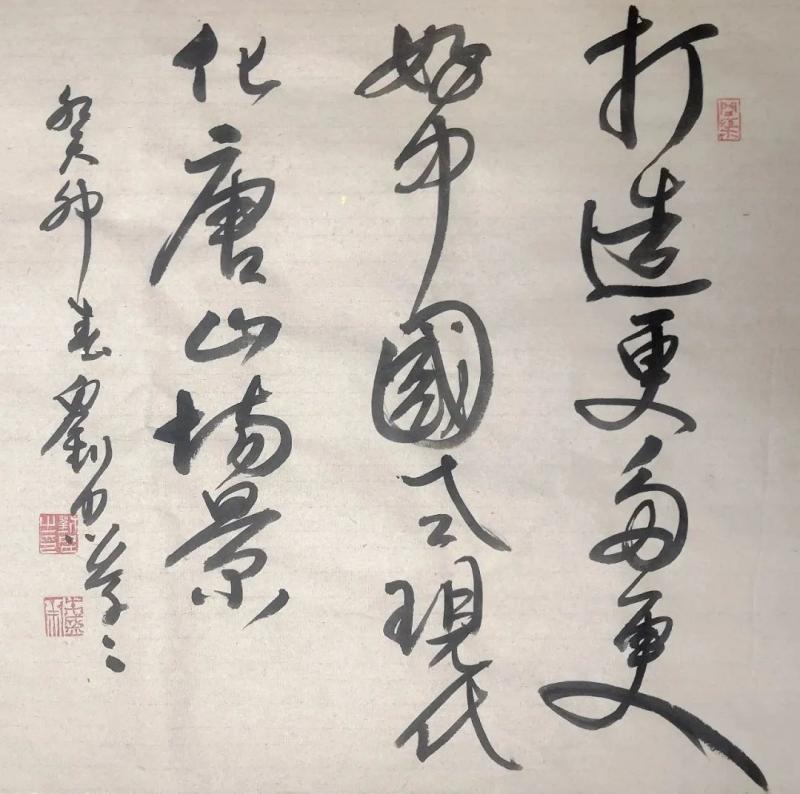 打造更多更
好中國式現代
化唐山場景
癸卯春劉